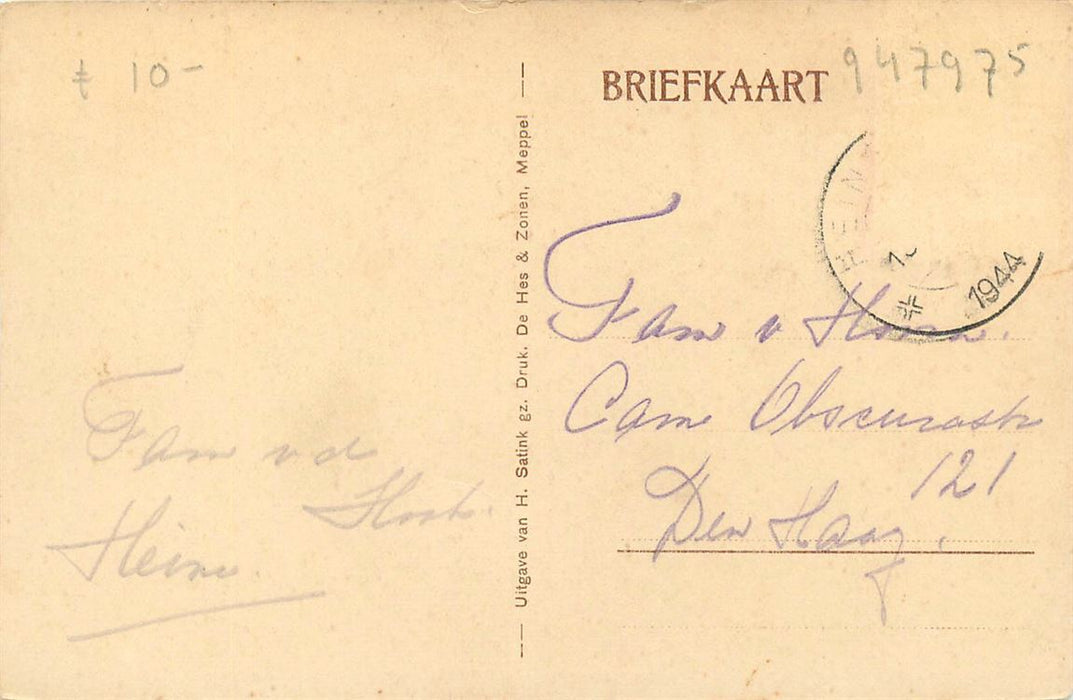 10-
BRIEFKAART
947975
1944
Uitgave van H. Satink gz. Druk. De Hes & Zonen, Meppel
Fam v Hoorn.
Cam Obscurastr
121
Den Haag.
Fam v d
Horst.
Heino.